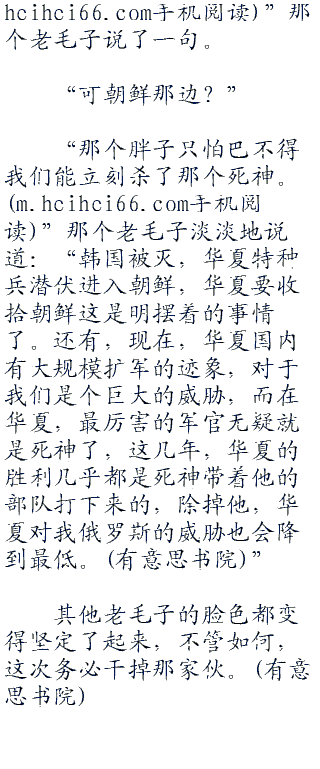 hcihci66.com手机阅读)”那
个老毛子说了一句。
“可朝鲜那边？”
“那个胖子只怕巴不得
我们能立刻杀了那个死神。
(m.hcihci66.com手机阅
读)”那个老毛子淡淡地说
道：“韩国被灭，华夏特种
兵潜伏进入朝鲜，华夏要收
拾朝鲜这是明摆着的事情
了。还有，现在，华夏国内
有大规模扩军的迹象，对于
我们是个巨大的威胁，而在
华夏，最厉害的军官无疑就
是死神了，这几年，华夏的
胜利几乎都是死神带着他的
部队打下来的，除掉他，华
夏对我俄罗斯的威胁也会降
到最低。(有意思书院)”
其他老毛子的脸色都变
得坚定了起来，不管如何，
这次务必干掉那家伙。(有意
思书院)